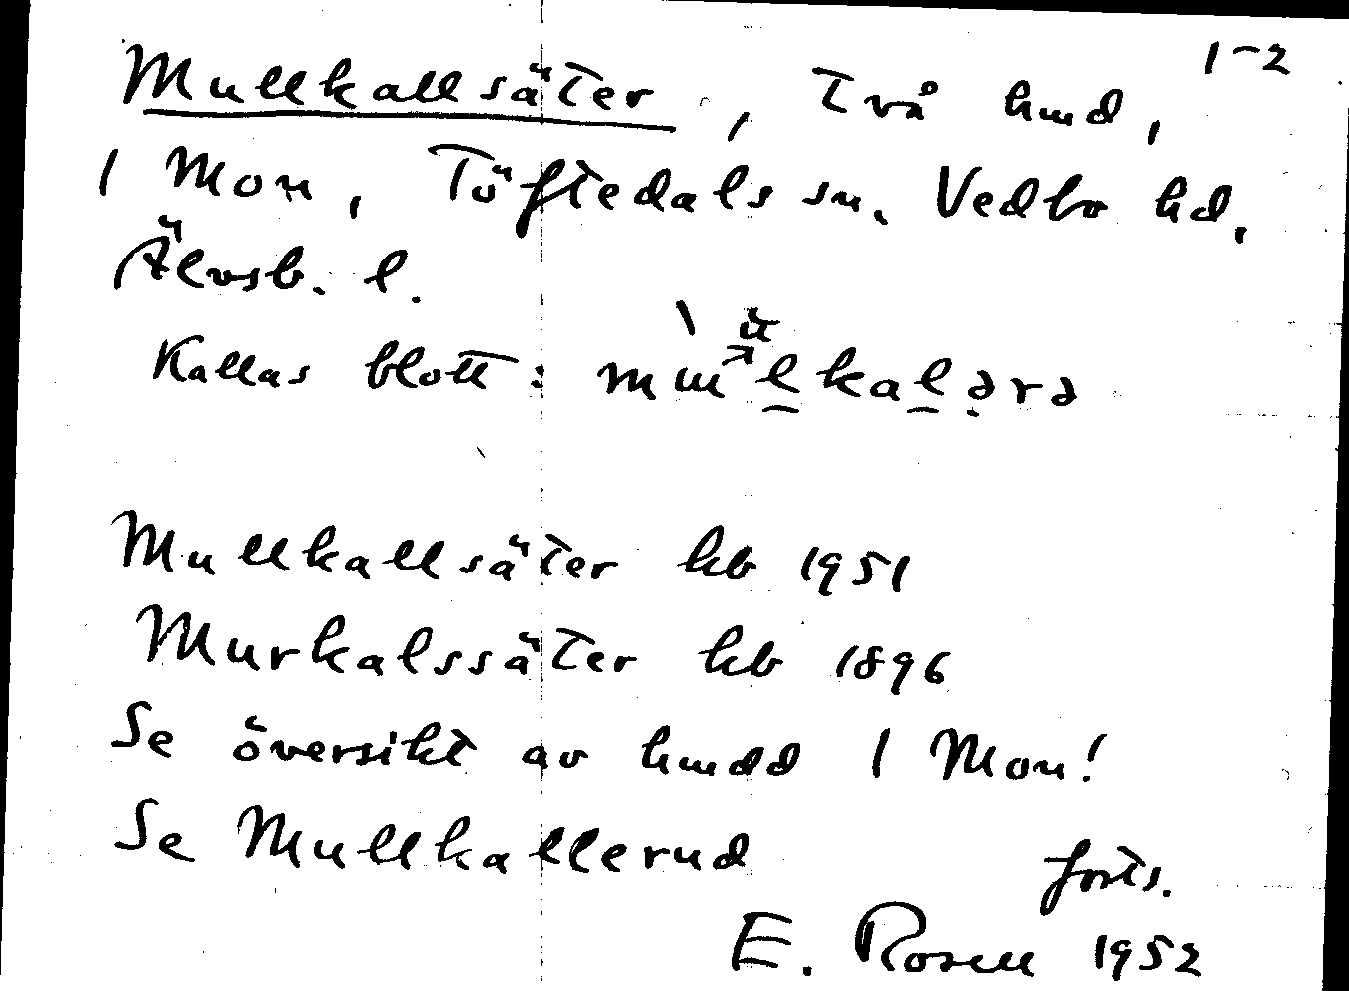 1-2
Mullkallsäter, Två hmd,
1 Mon, Töftedals sn. Vedbo hd,
Älvsb. l.
Kallas blott:
Mullkallsäter kb 1951
Murkalssäter kb 1896
Se översikt av hmdd 1 Mon!
Se Mullkallerud
forts.
E. Rosell 1952